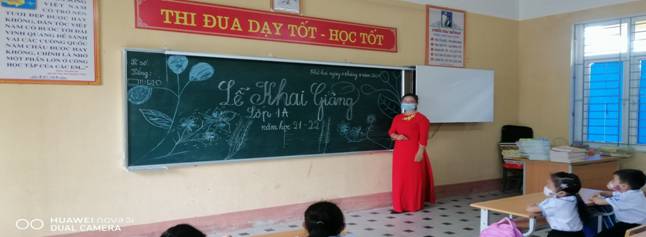 VIỆT NAM
TƯƠI ĐẸP ĐƯỢC HAY
KHÔNG, DÂN TỘC VIỆT
NAM CÓ BƯỚC TỚI ĐÀI
VINH QUANG ĐỂ SÁNH
VAI CÁC CƯỜNG QUỐC
NĂM CHÂU ĐƯỢC HAY
KHÔNG, CHÍNH LÀ NHỜ
MỘT PHẦN LỚN Ở CÔNG
HỌC TẬP CỦA CÁC EM..."
THI ĐUA DẠY TỐT - HỌC TỐT
Sĩ số:
Vắng:
Lễ Khai Giảng
Lớp 1A
năm học 21 - 22
HUAWEI nova 3i
DUAL CAMERA